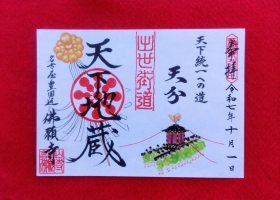 奉拝
令和七年十月一日
天下統一への道
天分
出世街道
天下地蔵
佛願寺